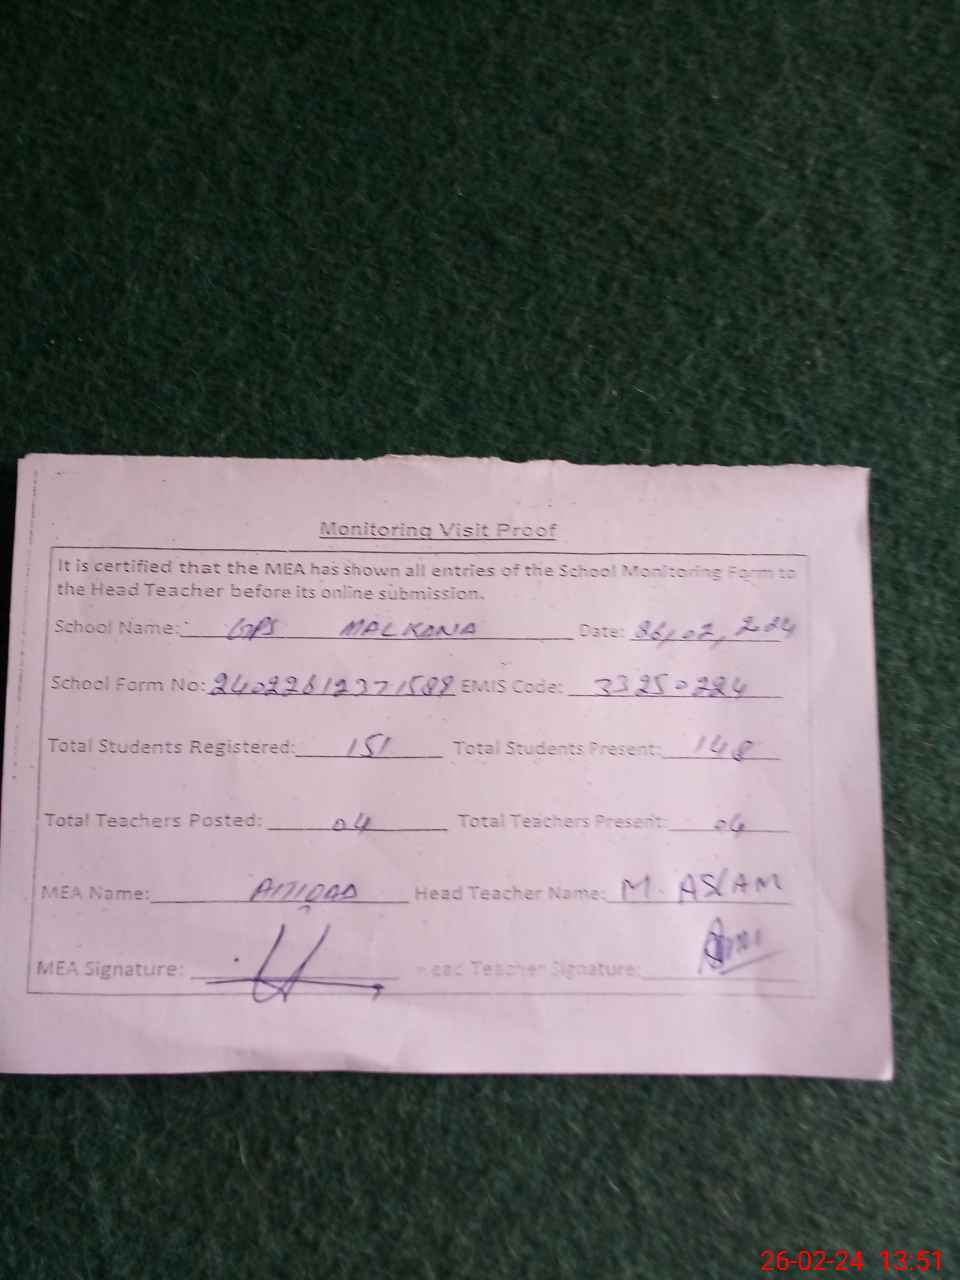 Monitoring Visit Proof
It is certified that the MEA has shown all entries of the School Monitoring Form to
the Head Teacher before its online submission.
School Name: GPS MALKANA Date: 26,02,2024
School Form No: EMIS Code: 33250224
Total Students Registered: 151 Total Students Present: 148
Total Teachers Posted: 04 Total Teachers Present: 04
MEA Name: Head Teacher Name: M. ASLAM
MEA Signature: Head Teacher Signature:
26-02-24 13:51